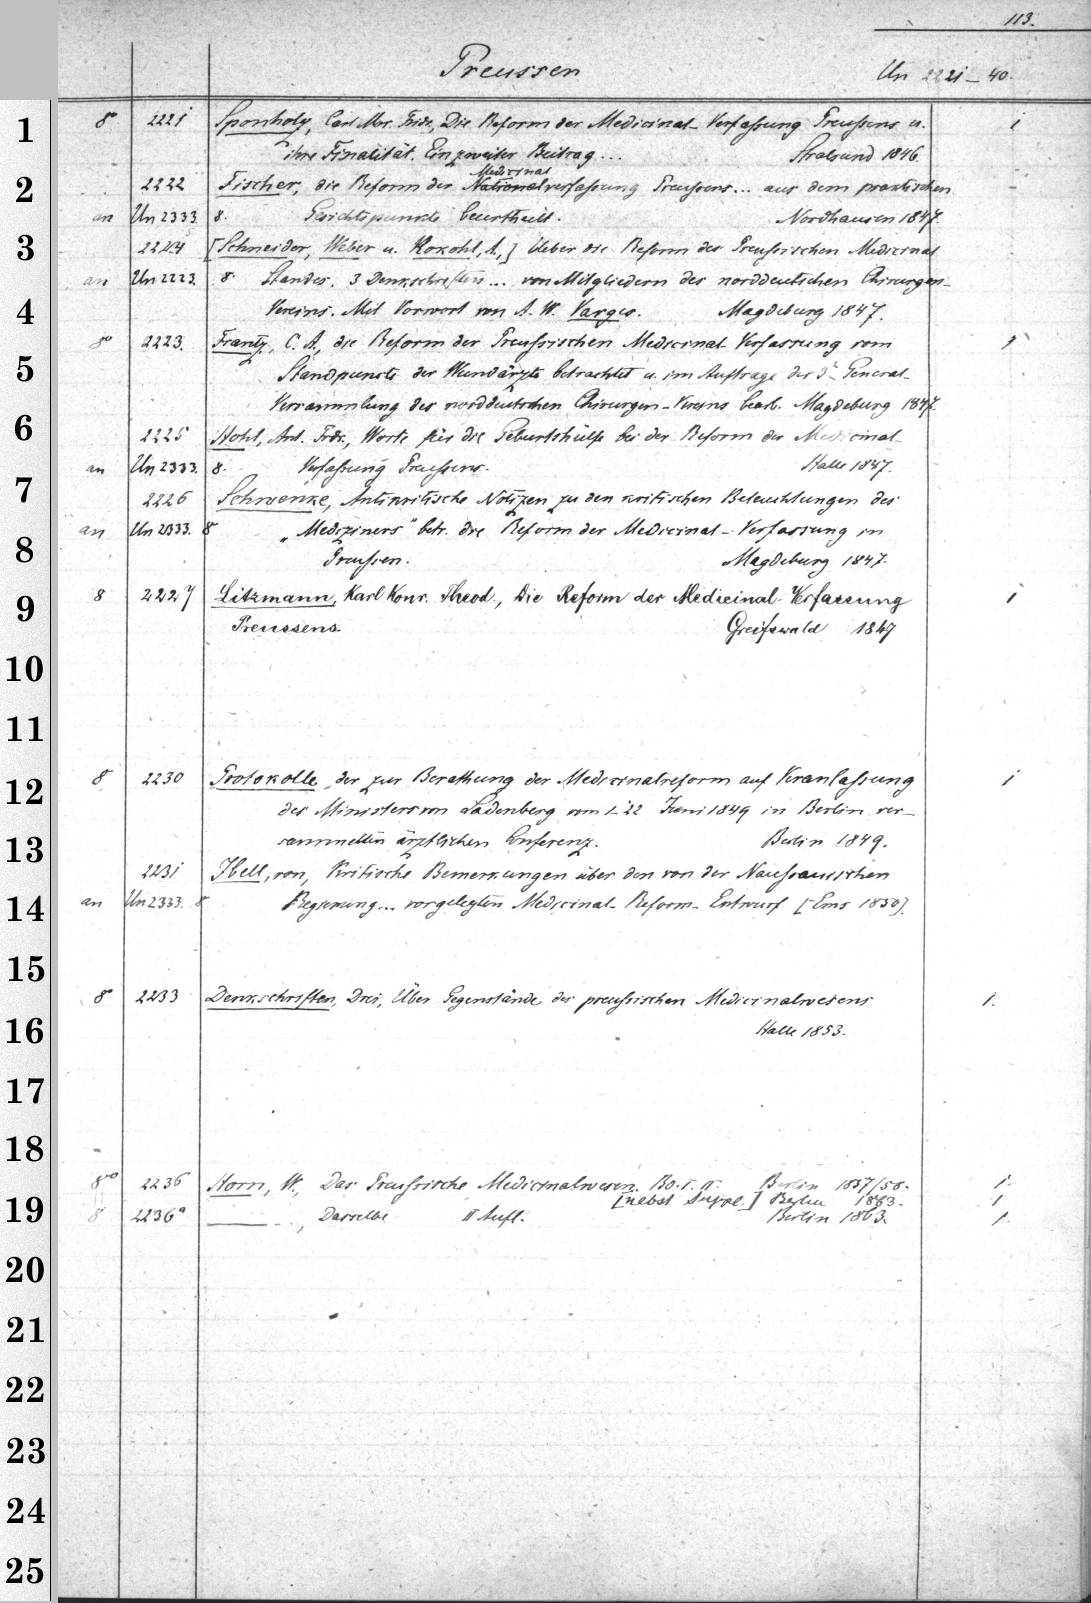 113.
Preussen Un 2221-40.
1 8° 2221 Sponholz, Carl Mor. Fride, Die Reform der Medicinal-Verfassung Preussens u. 1
ihre Finalität. Ein zweiter Beitrag... Stralsund 1846.
Medicinal
2 2222 Fischer, die Reform der Nationalverfassung Preussens... aus dem praktischen
an Un 2333. 8. Gesichtspunkte beurtheilt. Nordhausen 1847.
3 2224 [Schneider, Weber u. Kokohl, A.,] Ueber die Reform des Preussischen Medicinal
an Un 2223. 8 Standes. 3 Denkschriften... von Mitgliedern des norddeutschen Chirurgen-
4 Vereins. Mit Vorwort von A. W. Varges. Magdeburg 1847.
8° 2223. Frantz, C. A., die Reform der Preussischen Medicinal Verfassung vom 1
5 Standpuncte der Wundärzte betrachtet u. im Auftrage der General-
Versammlung des norddeutschen Chirurgen-Vereins bearb. Magdeburg 1847.
6 2225 Hohl, Ant. Frdr., Worte für die Geburtshülfe bei der Reform der Medicinal-
an Un 2333. 8. Verfassung Preussens. Halle 1847.
7 2226 Schwenke, Antikritische Notizen zu den kritischen Beleuchtungen des
an Un 2333. 8 „Mediziners" betr. die Reform der Medicinal-Verfassung in
8 Preussen. Magdeburg 1847.
9 8 2227 Litzmann, Karl Konr. Theod., Die Reform der Medicinal-Verfassung 1
Preussens. Greifswald 1847
10
11
12 8 2230 Protokolle der zur Berathung der Medicinalreform auf Veranlassung 1
des Ministers von Ladenberg vom 1-22 Juni 1849 in Berlin ver-
13 sammelten ärztlichen Conferenz. Berlin 1849.
2231 Ibell, von, Kritische Bemerkungen über den von der Naussauischen
14 an Un 2333. 8 Regierung... vorgelegten Medicinal-Reform-Entwurf [Ems 1850].
15
8° 2233 Denkschriften, Drei, Über Gegenstände des preussischen Medicinalwesens 1.
16 Halle 1853.
17
18
8° 2236 Horn, W., Das Preussische Medicinalwesen. Bd. I. II. Berlin 1857/58. 1.
[nebst Suppl.] Berlin 1863. 1
19 8 2236a ———, Dasselbe II Aufl. Berlin 1863. 1.
20
21
22
23
24
25